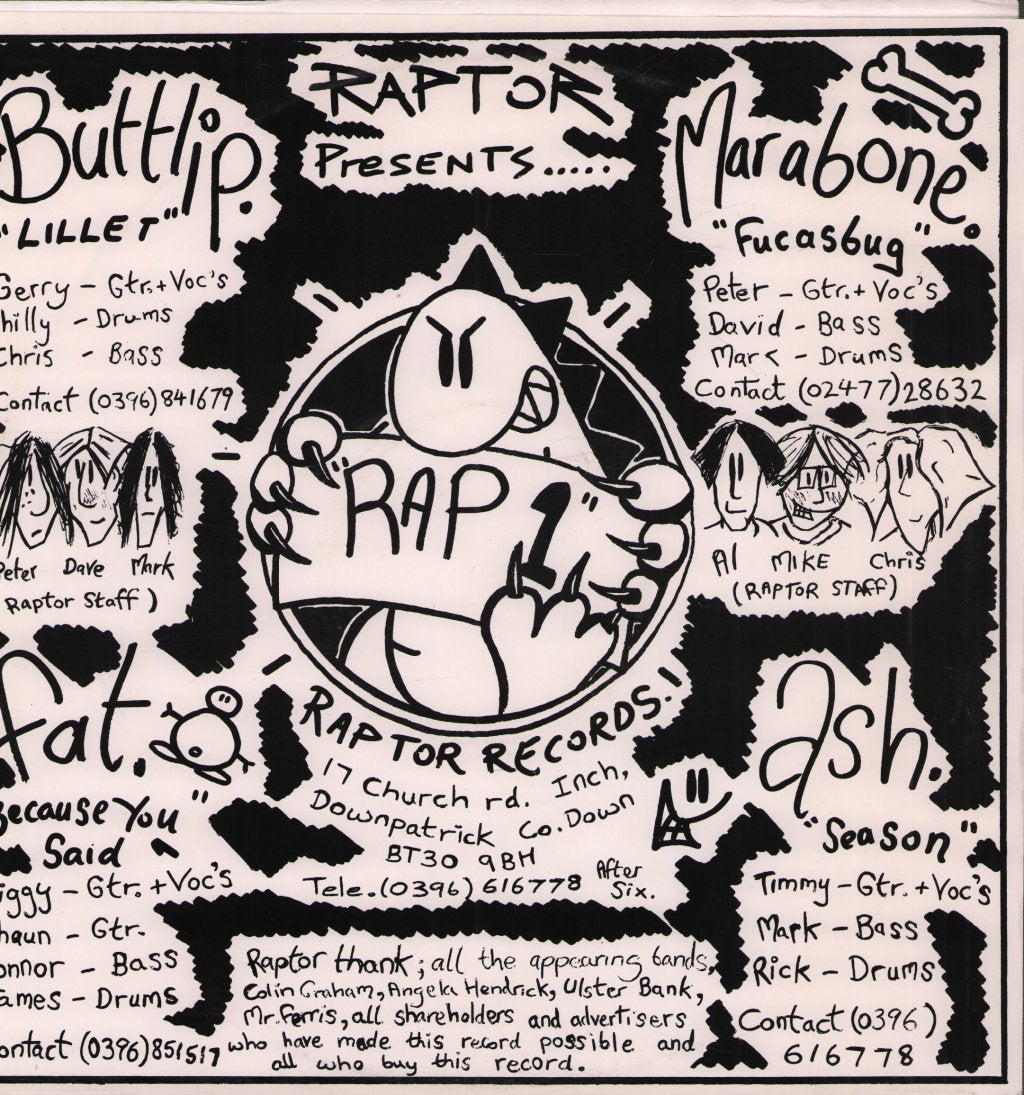 RAPTOR
Presents.....
Buttlip.
"LILLET"
Gerry - Gtr. + Voc's
hilly - Drums
Chris - Bass
Contact (0396) 841679
Peter Dave Mark
Raptor Staff)
Marabone.
"Fucasbug"
Peter - Gtr. + Voc's
David - Bass
Mark - Drums
Contact (02477) 28632
Al MIKE Chris
(RAPTOR STAFF)
"RAP 1"
RAPTOR RECORDS.!
17 Church rd. Inch,
Downpatrick Co. Down
BT30 9BH
Tele. (0396) 616778 After
Six.
fat.
Because You"
Said
iggy - Gtr. + Voc's
haun - Gtr.
onnor - Bass
ames - Drums
ontact (0396) 851517
Ash.
"Season"
Timmy - Gtr. + Voc's
Mark - Bass
Rick - Drums
Contact (0396)
616778
Raptor thank; all the appearing bands,
Colin Graham, Angela Hendrick, Ulster Bank,
Mr. Ferris, all shareholders and advertisers
who have made this record possible and
all who buy this record.